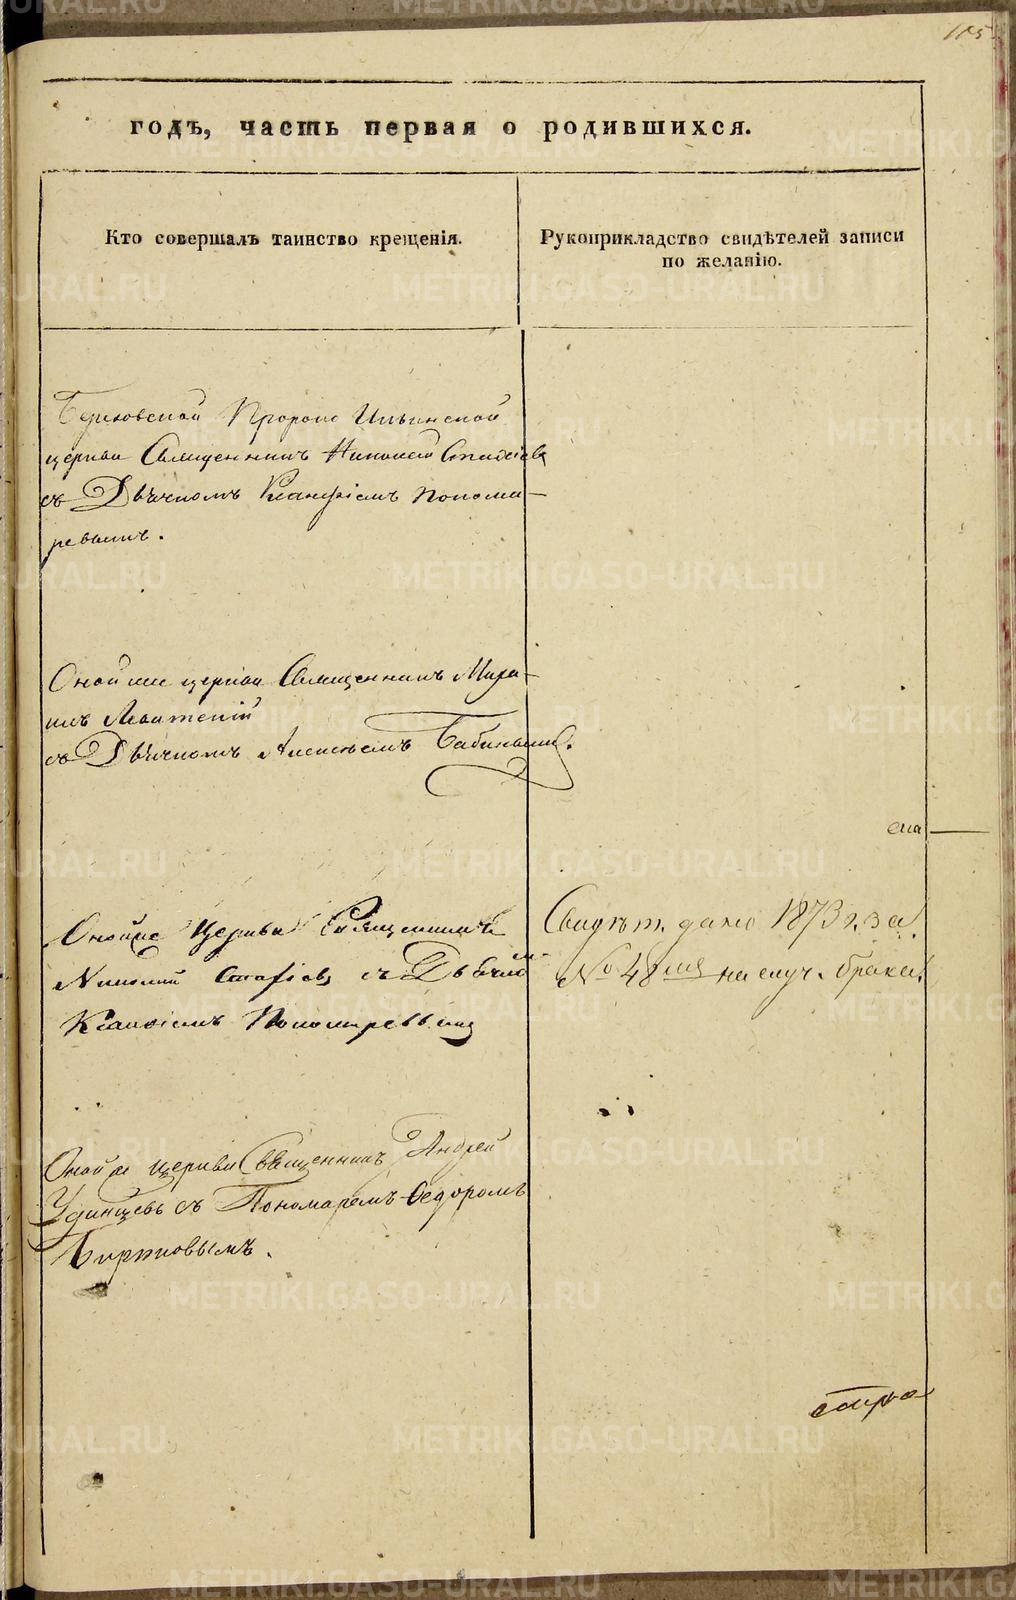 105
годъ, часть первая о родившихся.
Кто совершалъ таинство крещенія.
Рукоприкладство свидѣтелей записи
по желанію.
Пророко Ильинской
церкви Священникъ Николай
съ Дьячкомъ Ксанфіемъ Понома-
ревымъ.
Оной же церкви Священникъ Мира-
съ Дьячкомъ Алексѣемъ Бабиновымъ.
Оной же Церкви Священникъ
Николай съ Дьячко-
Ксанфіемъ Пономаревымъ
Свидѣт. дано 1873 г. за
№ 48 на случ. брака.
Оной же церкви Священникъ Андрей
Удинцевъ съ Пономаремъ Ѳедоромъ
METRIKI.GASO-URAL.RU